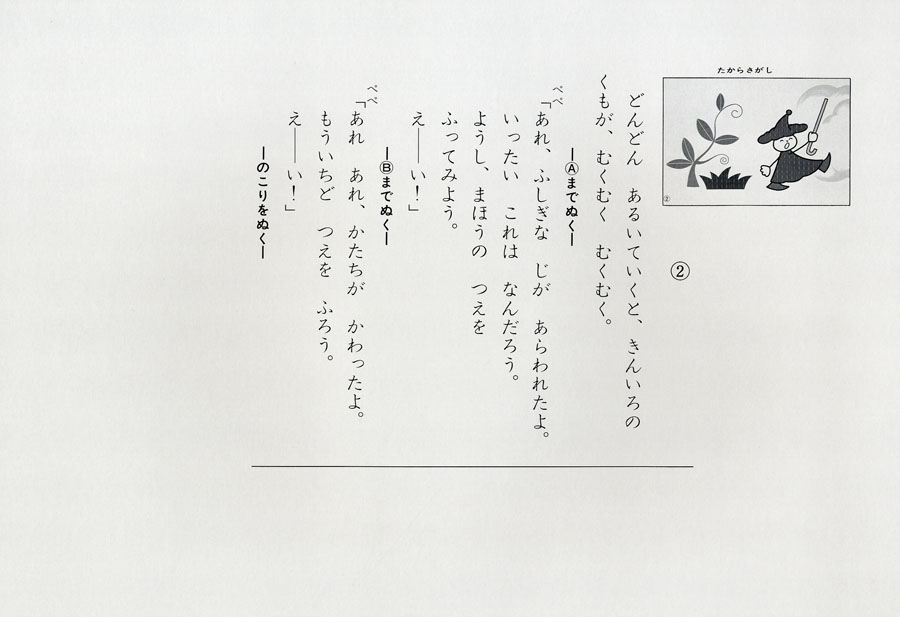 たからさがし
②
②
どんどん　あるいていくと、きんいろの
くもが、むくむく　むくむく。
―Ⓐまでぬく―
ぺぺ
「あれ、ふしぎな　じが　あらわれたよ。
いったい　これは　なんだろう。
ようし、まほうの　つえを
ふってみよう。
え――い！」
―Ⓑまでぬく―
ぺぺ
「あれ　あれ、かたちが　かわったよ。
もういちど　つえを　ふろう。
え――い！」
―のこりをぬく―